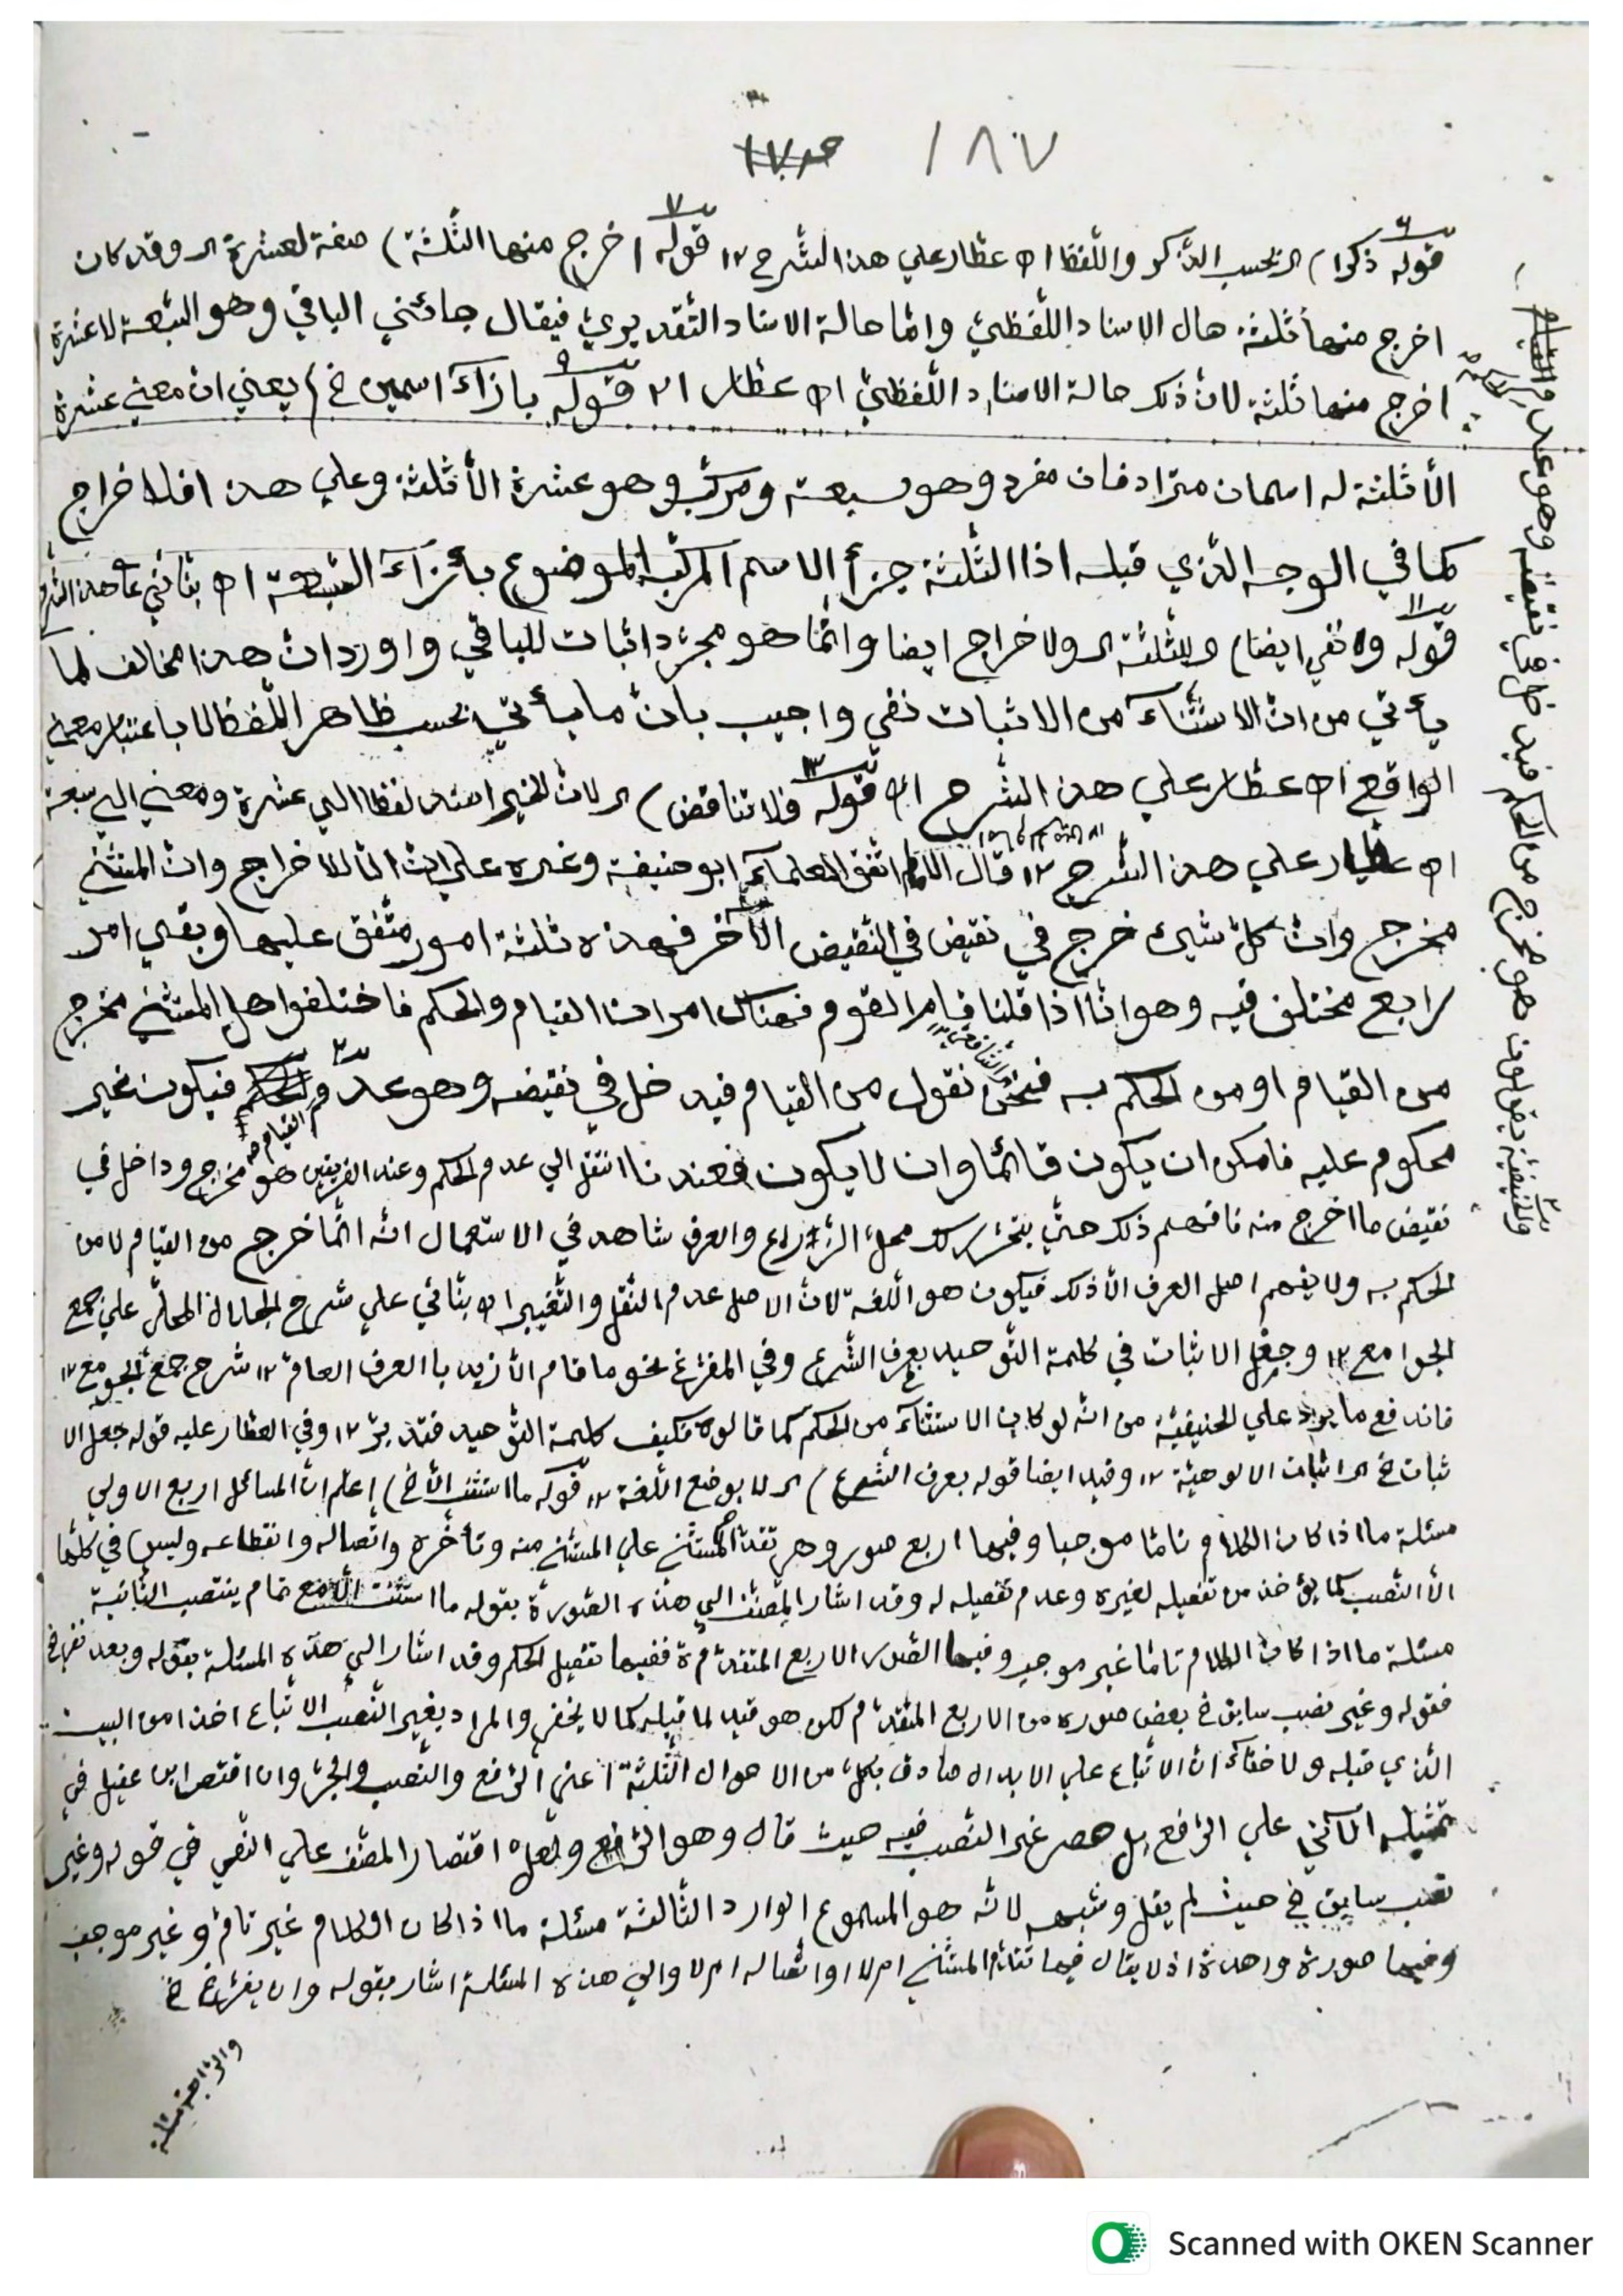 ١٨٧
قوله ذكرا) اي بحسب الذكر واللفظ اه عطار علي هذا الشرح ١٢ قوله اخرج منها الثلثة) صفة لعشرة اي وقد كان
اخرج منها ثلثة حال الاسناد اللفظي وامّا حالة الاسناد التقديري فيقال جائني الباقي وهو السبعة لا عشرة
اخرج منها ثلثة لان ذلك حالة الاسناد اللفظي اه عطار ١٢ قوله بازآء اسمين خ) يعني ان معني عشرة
الّا ثلثة له اسمان مترادفان مفرد وهو سبعة ومركب وهو عشرة الّا ثلثة وعلي هذا فلا اخراج
كما في الوجه الذي قبله اذا الثلثة جزأ الاسم المركب الموضوع بأزآء السبعة اه بنّاني علي هذا الشرح
قوله ولا نفي ايضا) للثلثة اي ولا اخراج ايضا وانّما هو مجرّد اثبات للباقي واورد انّ هذا مخالف لما
يأتي من انّ الاستثنآء من الاثبات نفي واجيب بانّ ما يأتي بحسب ظاهر اللفظ لا باعتبار معني
الواقع اه عطار علي هذا الشرح قوله فلا تناقض) اي لانّ الخبر اسند لفظا الي عشرة ومعني الي سبعة
اه عطار علي هذا الشرح ١٢ قال اتفق العلمآء ابو حنيفة وغيره علي انّ الّا للاخراج وانّ المستثني
مخرج وانّ كلّ شيئ خرج في نقيض في النّقيض الآخر فهذه ثلثة امور متّفق عليها وبقي امر
رابع مختلف فيه وهو انّا اذا قلنا قام القوم فهناك امران القيام والحكم فاختلفوا هل المستثني مخرج
من القيام او من الحكم به فنحن نقول من القيام فيدخل في نقيضه وهو عدم القيام فيكون غير
محكوم عليه فامكن ان يكون قائما وان لا يكون فعندنا انتقل الي عدم الحكم وعند الفريقين هو مخرج وداخل في
نقيض ما اخرج منه فافهم ذلك حتّي يتحرّر لك محلّ النّزاع والعرف شاهد في الاستعمال انّه انّما خرج من القيام لا من
الحكم به ولا يفهم اهل العرف الّا ذلك فيكون هو اللغة لانّ الاصل عدم النّقل والتّغيير اه بنّاني علي شرح الجلال المحلّي علي جمع
الجوامع ١٢ وجعل الاثبات في كلمة التوحيد بعرف الشّرع وفي المفرّغ نحو ما قام الّا زيد بالعرف العامّ ١٢ شرح جمع الجوامع ١٢
فاندفع ما يرد علي الحنيفيّة من انّه لو كان الاستثنآء من الحكم كما قالوه فكيف كلمة التّوحيد فتدبّر ١٢ وفي العطار عليه قوله جعل الا
ثبات خ اي اثبات الالوهيّة ١٢ وفيه ايضا قوله بعرف الشّرع) اي لا بوضع اللّغة ١٢ قوله ما استثنت الّا خ) اعلم انّ المسائل اربع الاولي
مسئلة ما اذا كان الكلام تامّا موجبا وفيها اربع صور وهي تقدّم المستثني علي المستثني منه وتأخّره واتّصاله وانقطاعه وليس في كلّها
الّا النّصب كما يؤخذ من تفصيله لغيره وعدم تفصيله له وقد اشار المصنّف الي هذه الصّورة بقوله ما استثنت الّا مع تمام ينتصب الثّانية
مسئلة ما اذا كان الكلام تامّا غير موجب وفيها الصّور الاربع المتقدّمة ففيها تفصيل الحكم وقد اشار الي هذه المسئلة بقوله وبعد نفي خ
فقوله وغير نصب سابق خ بعض صوره من الاربع المتقدّم لكن هو قيد لما قبله كما لا يخفي والمراد بغير النّصب الاتباع اخذا من البيت
الّذي قبله ولا خفآء انّ الاتباع علي الابدال صادق بكلّ من الاحوال الثّلثة اعني الرّفع والنّصب والجرّ وان اقتصر ابن عقيل في
تمثيله الآتي علي الرّفع بل حصر غير النّصب فيه حيث قال وهو الرّفع ولعلّ اقتصار المصنّف علي النّفي في قوله وغير
نصب سابق خ حيث لم يقل وشبهه لانّه هو المسموع الوارد الثّالثة مسئلة ما اذا كان الكلام غير تامّ وغير موجب
وفيها صورة واحدة اذ لا يقال فيها تقدّم المستثني ام لا او اتّصاله ام لا والي هذه المسئلة اشار بقوله وان يفرّغ خ
والرّابعة مسئلة
والحنيفيّة يقولون هو مخرج من الحكم فيدخل في نقيضه وهو عدم
Scanned with OKEN Scanner